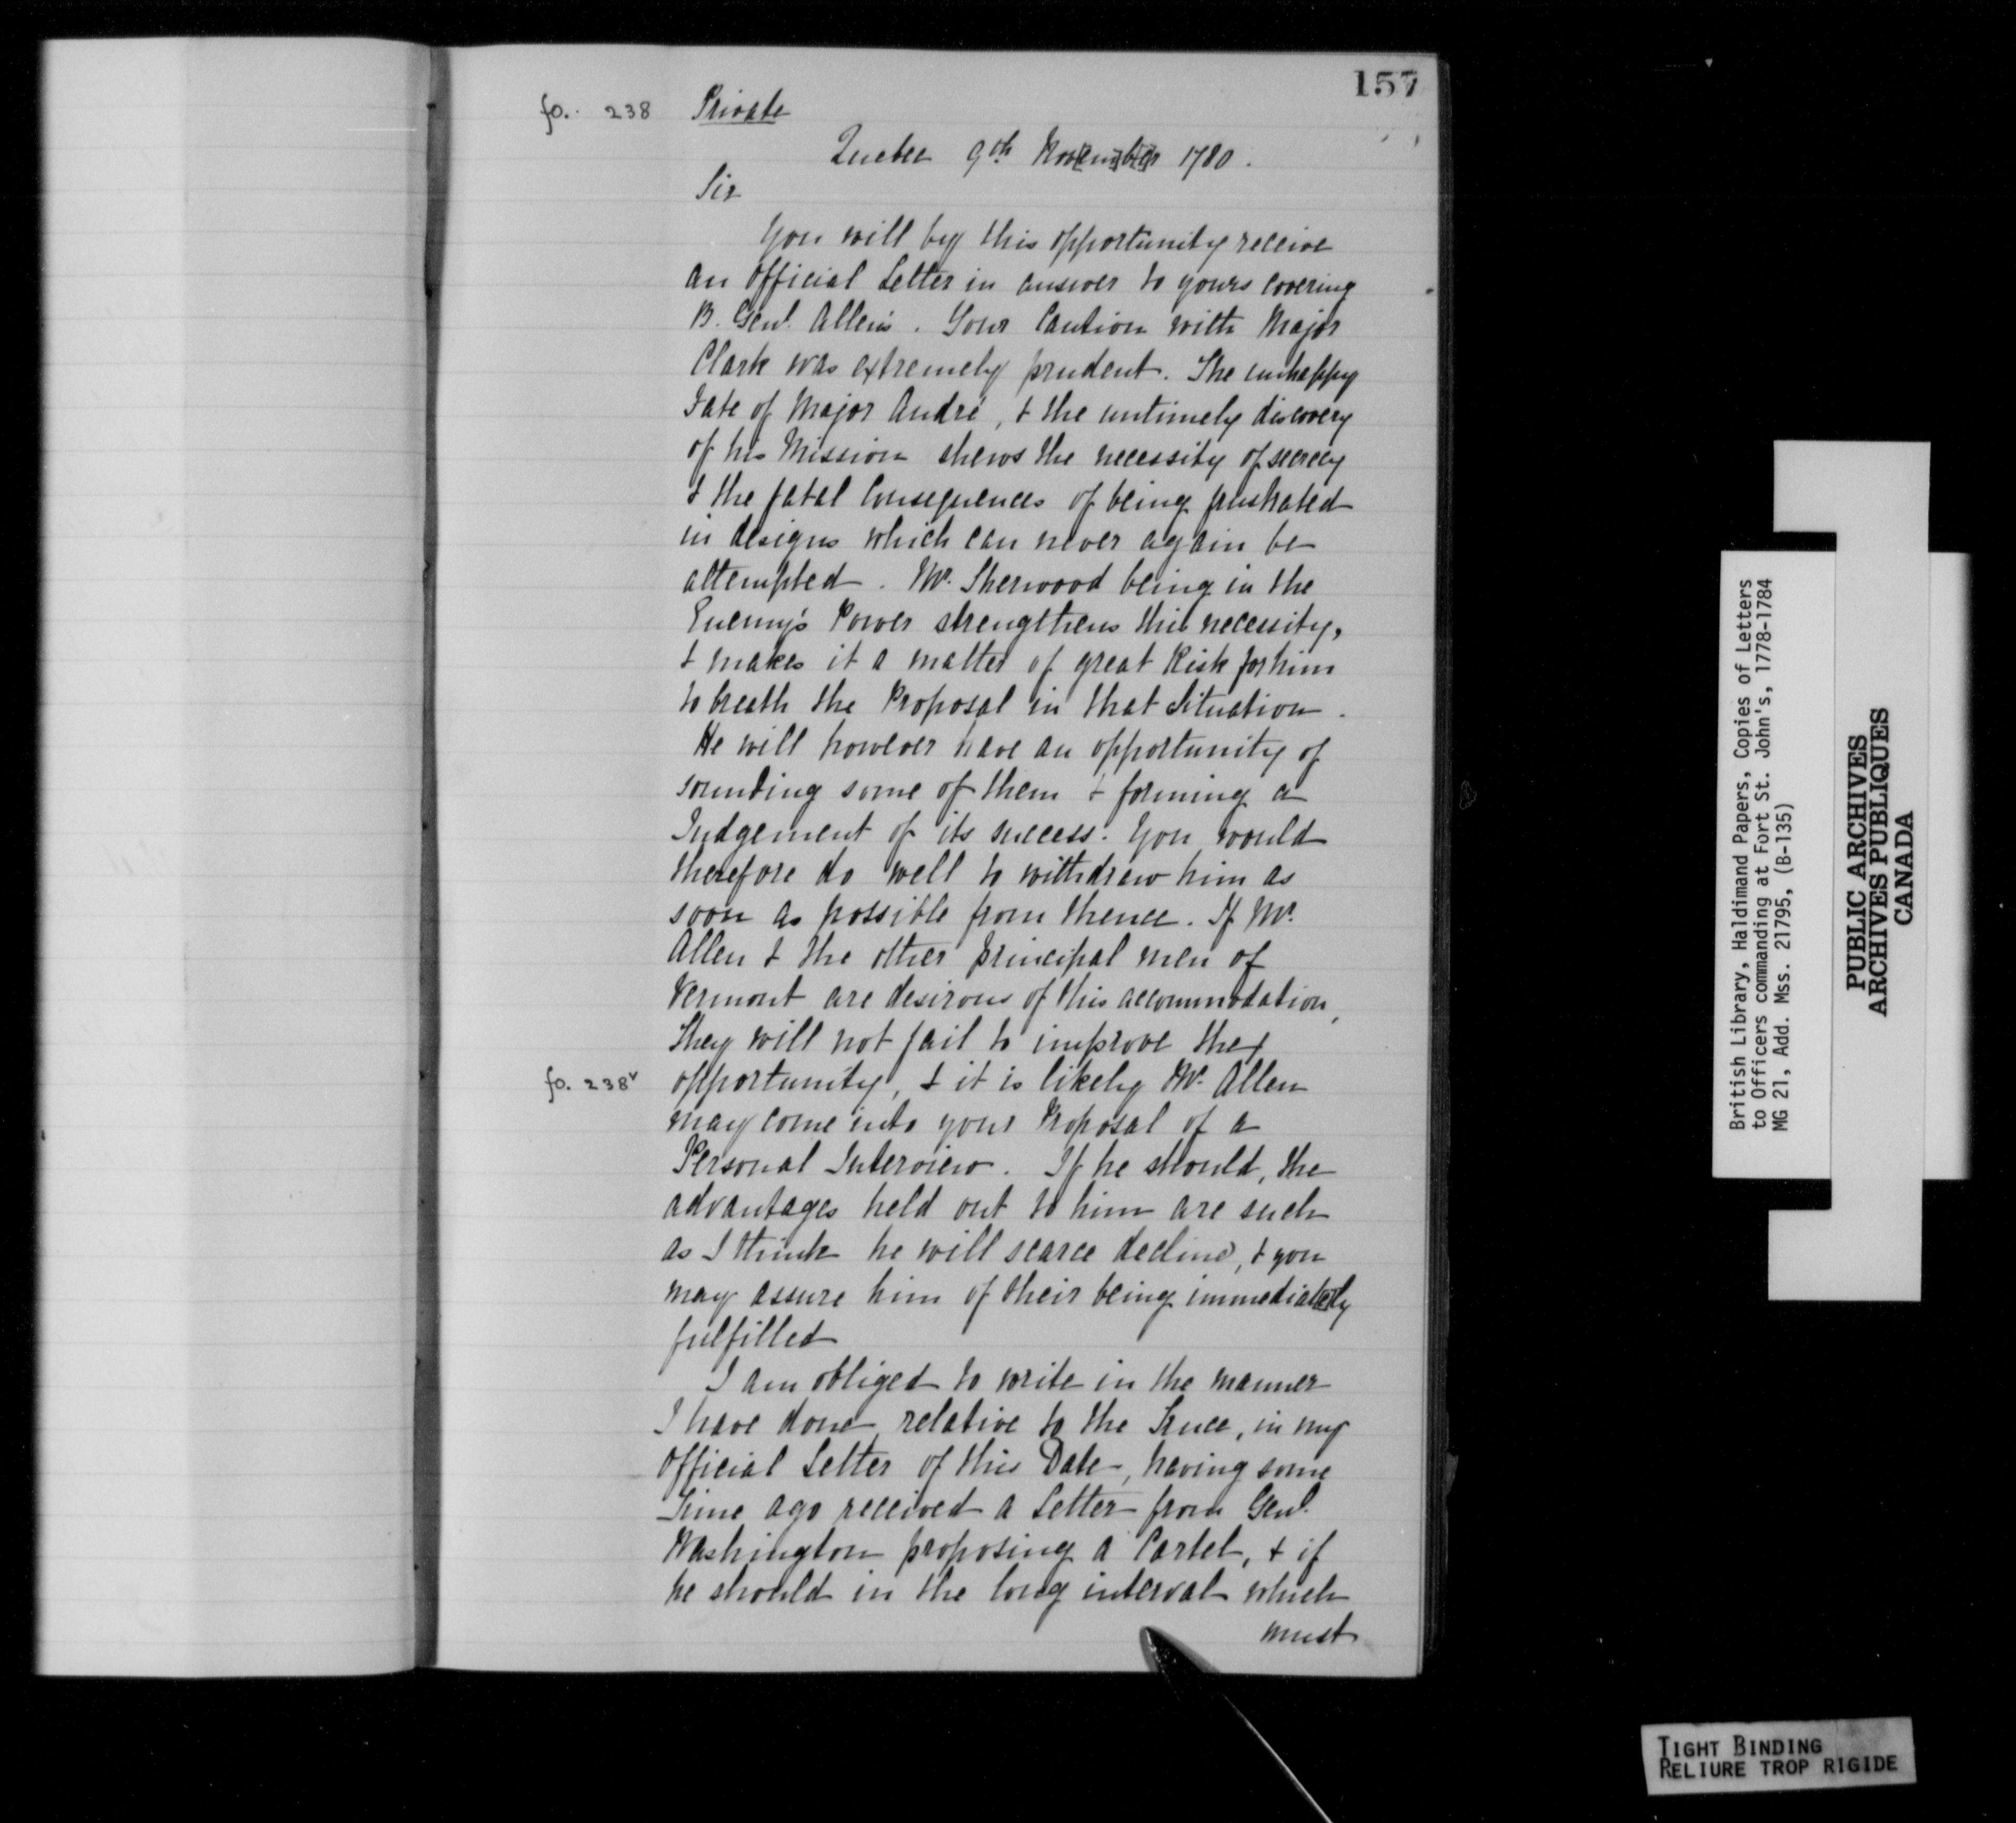 157
fo. 238 Private
Quebec 9th Nov[em]b[e]r 1780.
Sir
You will by this opportunity receive
an Official Letter in answer to yours covering
B. Genl. Allen's. Your Caution with Major
Clark was extremely prudent. The unhappy
Fate of Major André, & the untimely discovery
of his Mission shews the necessity of secrecy
& the fatal Consequences of being frustrated
in designs which can never again be
attempted. Mr. Sherwood being in the
Enemy's Power strengthens this necessity,
& makes it a matter of great Risk for him
to breath the Proposal in that Situation.
He will however have an opportunity of
sounding some of them & forming a
Judgement of its success. You would
therefore do well to withdraw him as
soon as possible from thence. If Mr.
Allen & the other principal men of
Vermont are desirous of this accommodation,
They will not fail to improve the
fo. 238v opportunity, & it is likely Mr. Allen
may come into your Proposal of a
Personal Interview. If he should, the
advantages held out to him are such
as I think he will scarce decline, & you
may assure him of their being immediat[e]ly
fulfilled
I am obliged to write in the manner
I have done relative to the Truce, in my
Official Letter of this Date, having some
Time ago received a Letter from Genl.
Washington proposing a Cartel, & if
he should in the long interval which
must
British Library, Haldimand Papers, Copies of Letters
to Officers commanding at Fort St. John's, 1778-1784
MG 21, Add. Mss. 21795, (B-135)
PUBLIC ARCHIVES
ARCHIVES PUBLIQUES
CANADA
TIGHT BINDING
RELIURE TROP RIGIDE